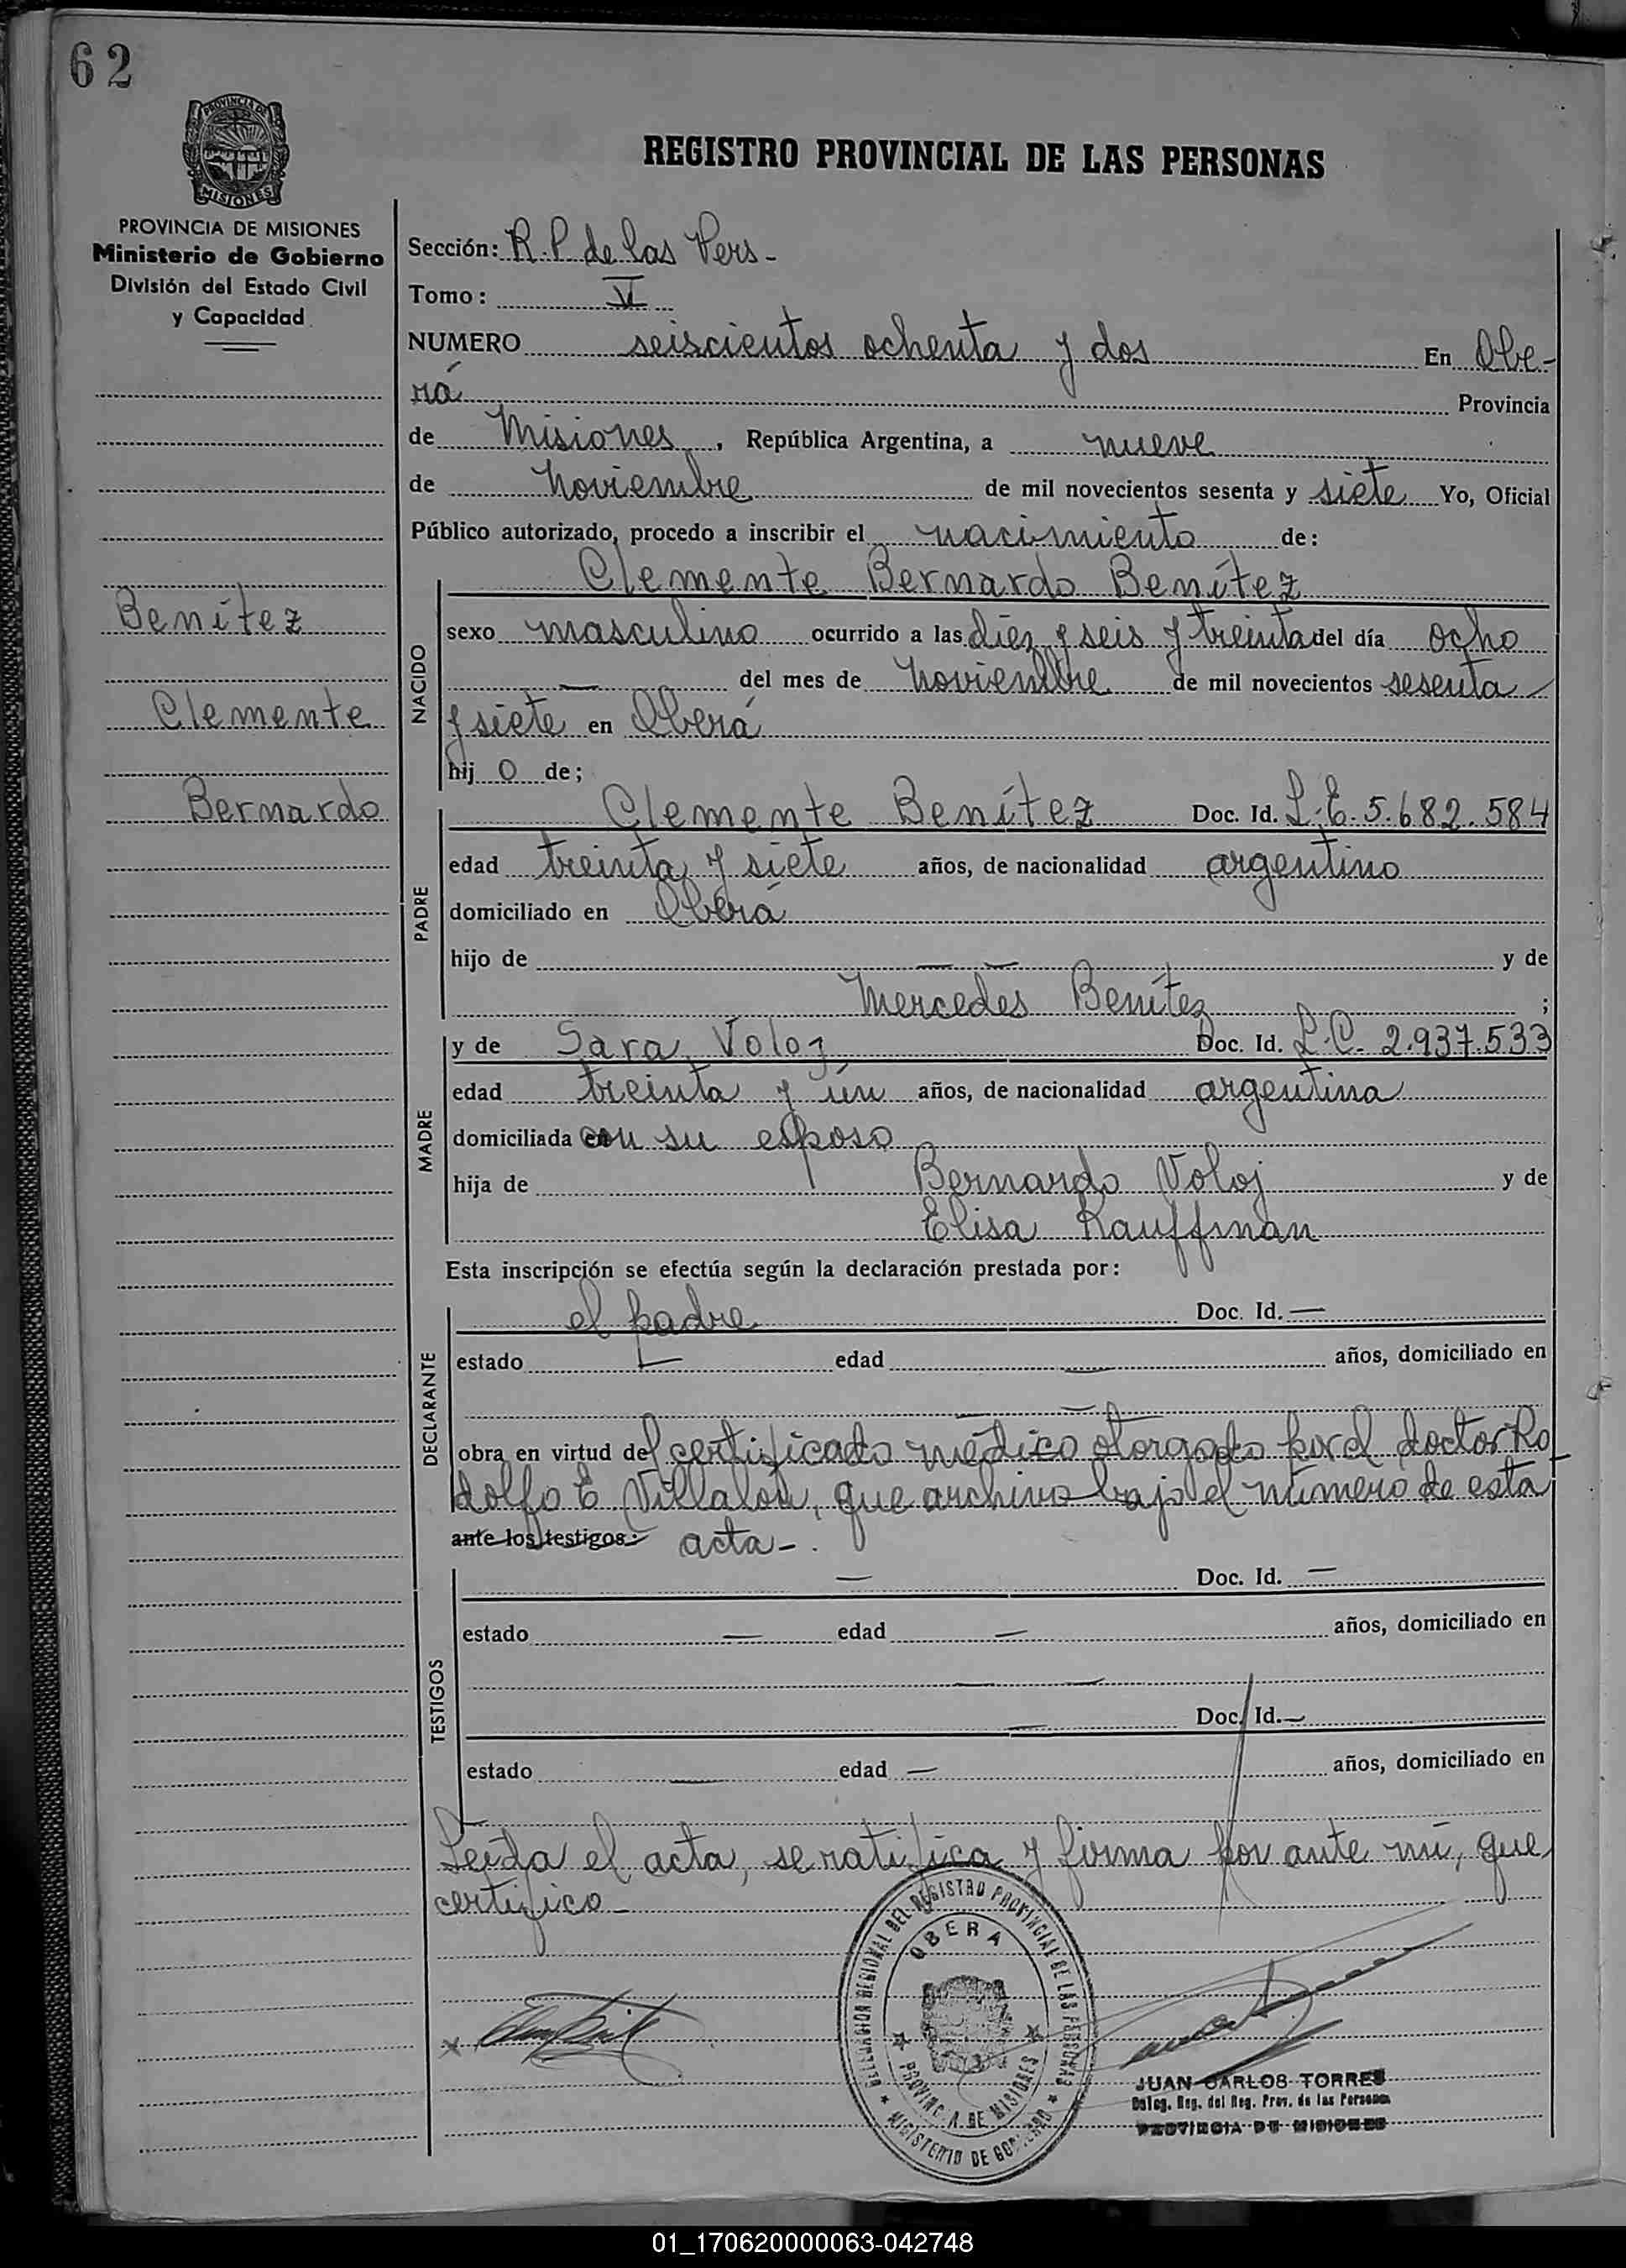 62
PROVINCIA DE
MISIONES
REGISTRO PROVINCIAL DE LAS PERSONAS
PROVINCIA DE MISIONES
Ministerio de Gobierno
División del Estado Civil
y Capacidad
Benítez
Clemente
Bernardo
Sección: R.P. de las Pers-
Tomo: VI
NUMERO seiscientos ochenta y dos En Obe-
rá Provincia
de Misiones, República Argentina, a nueve
de Noviembre de mil novecientos sesenta y siete Yo, Oficial
Público autorizado, procedo a inscribir el nacimiento de:
NACIDO
Clemente Bernardo Benítez
sexo masculino ocurrido a las diez y seis y treinta del día ocho
— del mes de Noviembre de mil novecientos sesenta
y siete en Oberá
hij o de;
PADRE
Clemente Benítez Doc. Id. L.E. 5.682.584
edad treinta y siete años, de nacionalidad argentino
domiciliado en Oberá
hijo de — — y de
Mercedes Benítez ;
MADRE
y de Sara Voloj Doc. Id. L.C. 2.937.533
edad treinta y ún años, de nacionalidad argentina
domiciliada con su esposo
hija de Bernardo Voloj y de
Elisa Kauffman
Esta inscripción se efectúa según la declaración prestada por:
DECLARANTE
el padre Doc. Id. —
estado — edad — años, domiciliado en
— —
obra en virtud del certificado médico otorgado por el doctor Ro
dolfo E Villalón, que archivo bajo el número de esta
ante los testigos: acta-.
TESTIGOS
— Doc. Id. —
estado — edad — años, domiciliado en
— —
— Doc. Id. —
estado — edad — años, domiciliado en
Leída el acta, se ratifica y firma por ante mí, que
certifico-
x
DELEGACION REGIONAL DEL REGISTRO PROVINCIAL DE LAS PERSONAS
OBERA
PROVINCIA DE MISIONES
MINISTERIO DE GOBIERNO
JUAN CARLOS TORRES
Deleg. Reg. del Reg. Prov. de las Personas
PROVINCIA DE MISIONES
01_170620000063-042748